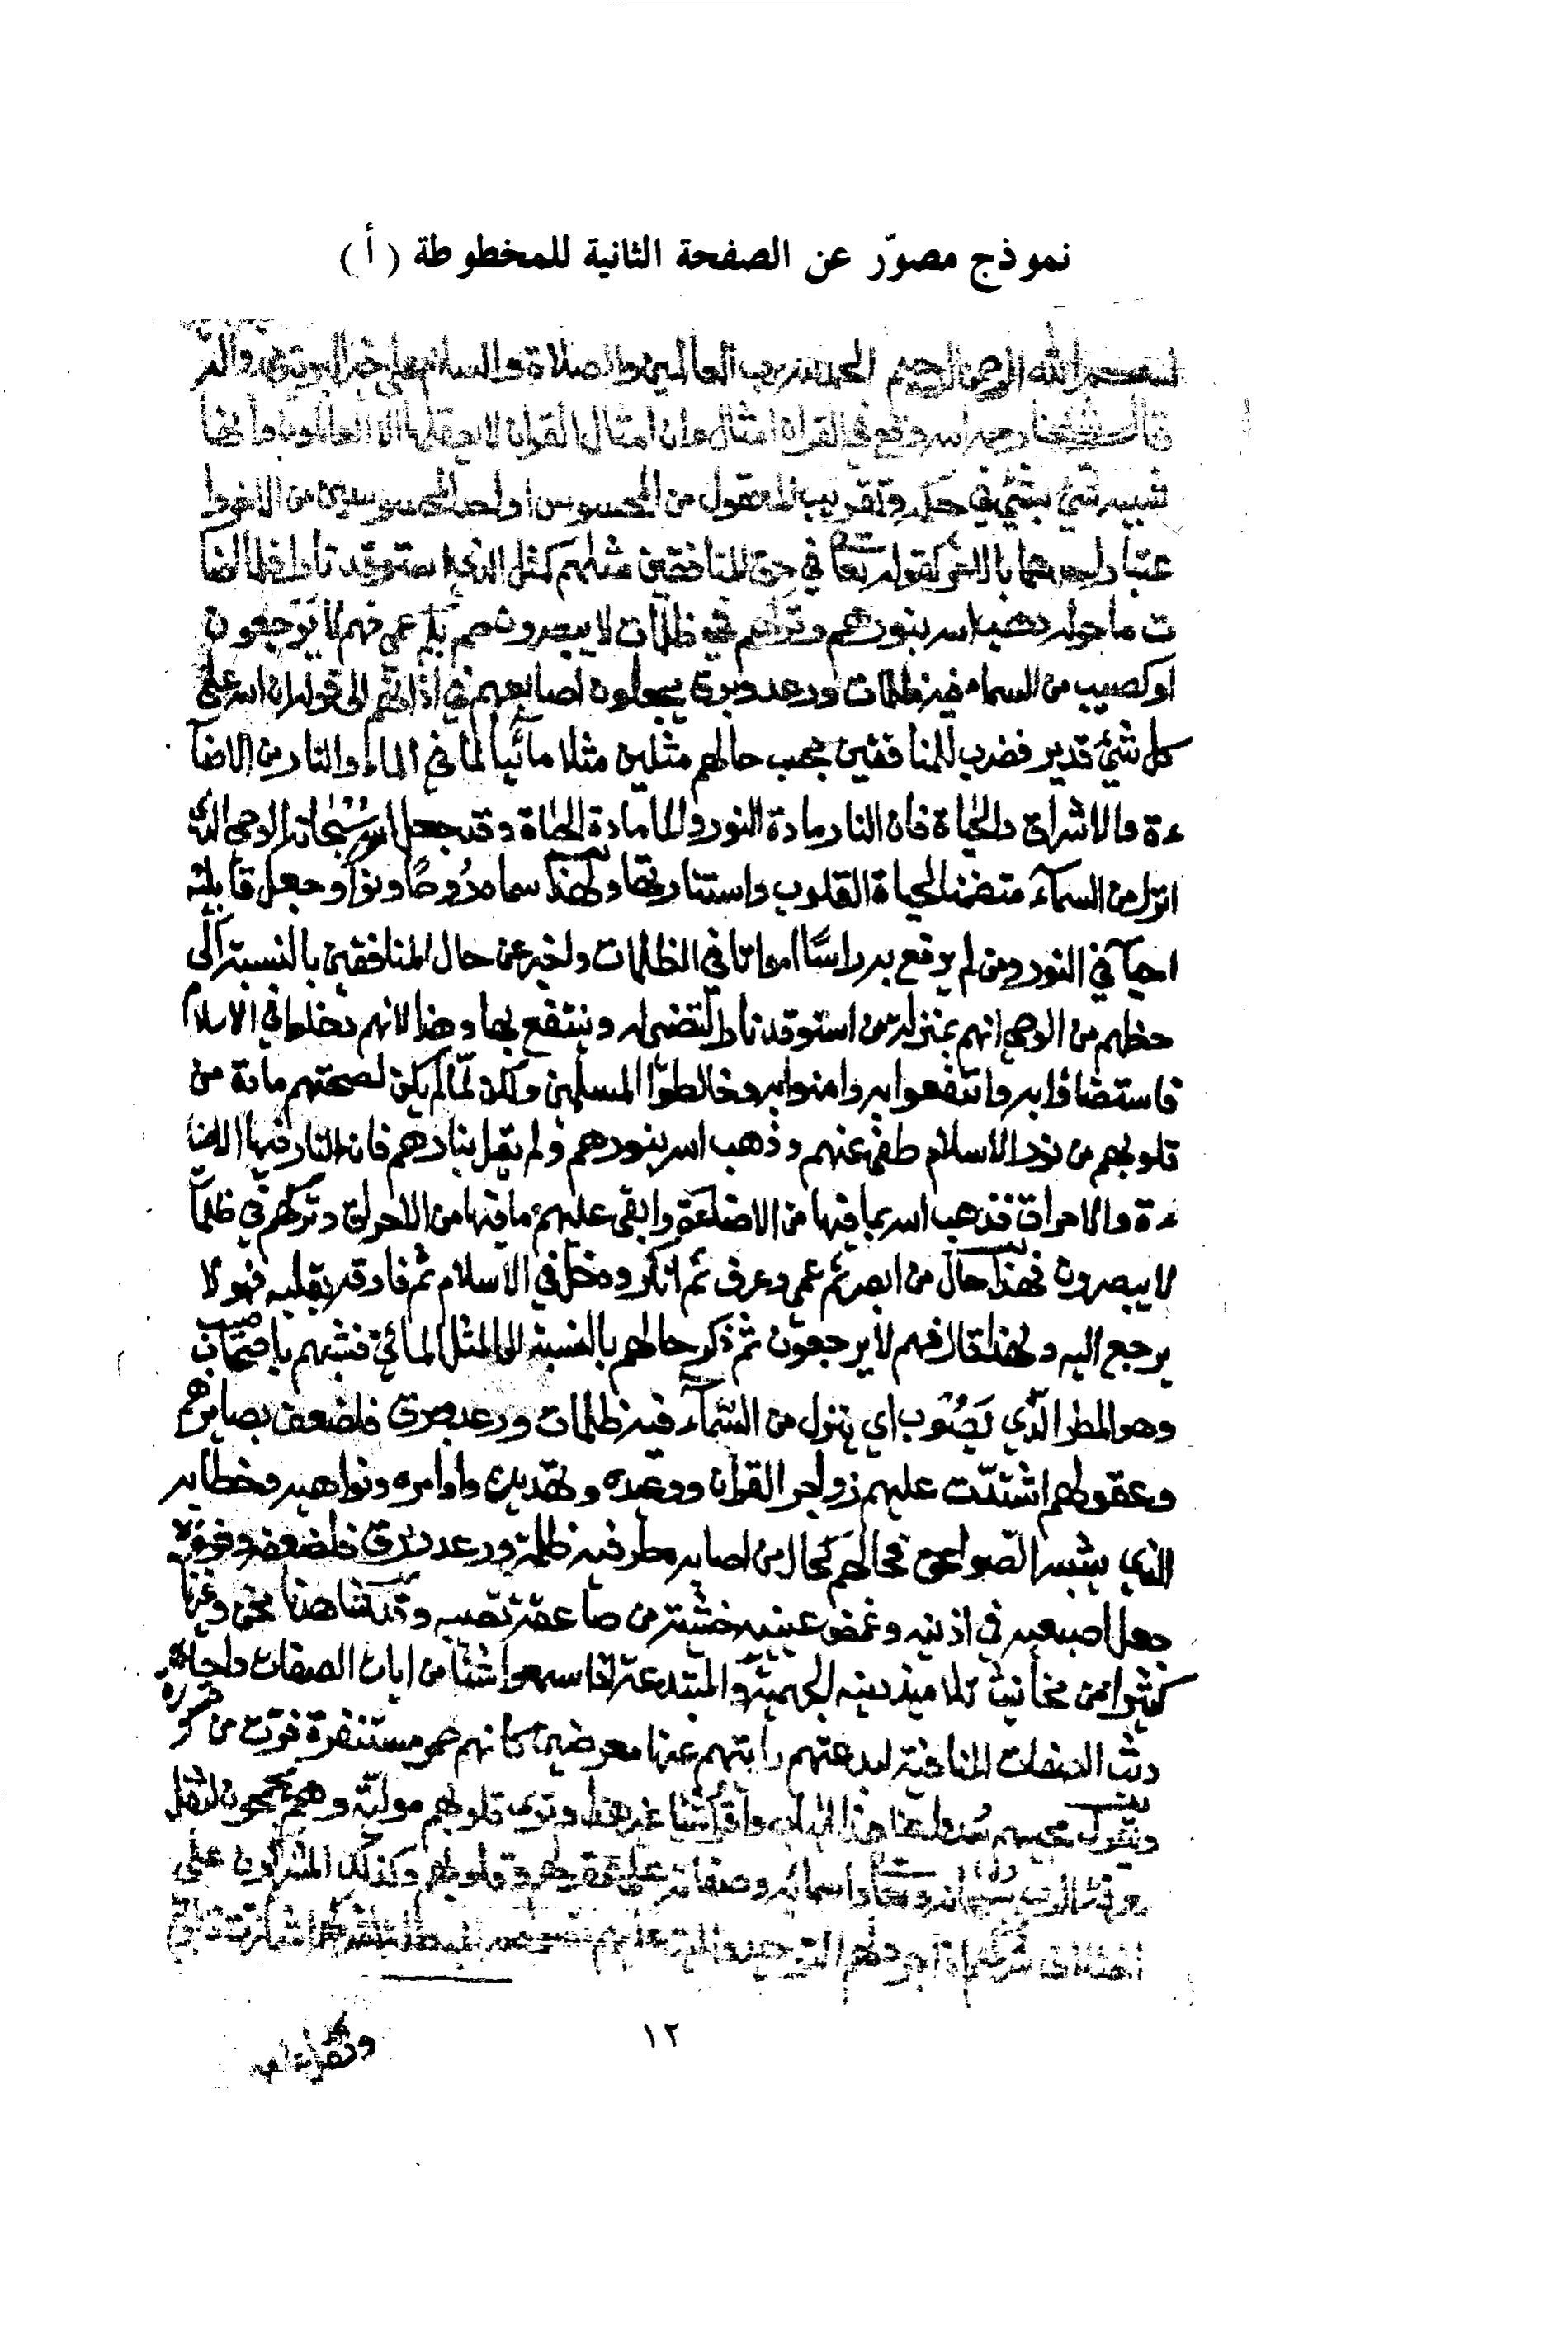 نموذج مصوّر عن الصفحة الثانية للمخطوطة (أ)
بسم الله الرحمن الرحيم الحمد لله رب العالمين والصلاة والسلام على خير البرية
قال شيخنا رحمه الله وقع في القران امثال وان امثال القران لا يعقلها الا العالمون وانها
تشبيه شيء بشيء في حكمه وتقريب المعقول من المحسوس او احد المحسوسين من الاخر وا
عتبار احدهما بالاخر كقوله تعا في حق المنافقين مثلهم كمثل الذي استوقد نارا فلما اضا
ت ما حوله ذهب الله بنورهم وتركهم في ظلمات لا يبصرون صم بكم عمي فهم لا يرجعون
او كصيب من السماء فيه ظلمات ورعد وبرق يجعلون اصابعهم في اذانهم الى قوله ان الله على
كل شيئ قدير فضرب للمنافقين بحسب حالهم مثلين مثلا مائيا لما في الماء والنار من الاضآ
ءة والاشراق والحياة فان النار مادة النور والما مادة الحياة وقد جعل الله سُبْحانه الوحي الذي
انزل من السمآء متضمنا لحياة القلوب واستنارتها ولهذا سماه رُوحًا ونورًا وجعل قابليه
احيآ في النور ومن لم يرفع به راسًا امواتا في الظلمات واخبر عن حال المنافقين بالنسبة الى
حظهم من الوحي انهم بمنزلة من استوقد نارا لتضىء له وينتفع بها وهذا لانهم دخلوا في الاسلام
فاستضاؤا به وانتفعوا به وامنوا به وخالطوا المسلمين ولكن لمّا لم يكن لصحتهم مادة من
قلوبهم من نور الاسلام طفي عنهم وذهب الله بنورهم ولم يقل بنارهم فان النار فيها الاضا
ءة والاحراق فذهب الله بما فيها من الاضاءة وابقى عليهم ما فيها من الاحراق وتركهم في ظلمآ
لا يبصرون فهذا حال من ابصر ثم عمي وعرف ثم انكر ودخل في الاسلام ثم فارقه بقلبه فهو لا
يرجع اليه ولهذا قال فهم لا يرجعون ثم ذكر حالهم بالنسبة الى المثل المائي فشبههم باصحاب صيب
وهو المطر الّذي يَصُوب اي ينزل من السّمآء فيه ظلمات ورعد وبرق فلضعف بصايرهم
وعقولهم اشتدّت عليهم زواجر القران ووعيده وتهديده واوامره ونواهيه وخطابه
الذي يشبه الصّواعق فحالهم كحال من اصابه مطر فيه ظلمة ورعد وبرق فلضعفه وخوفه
جعل اصبعيه في اذنيه وغمض عينيه خشية من صاعقة تصيبه وقد شاهدنا نحن وغيرنا
كثيرا من مخانيث تلاميذ الجهمية والمبتدعة اذا سمعوا شيئا من ايات الصفات واحا
ديث الصفات المنافية لبدعتهم رايتهم عنها معرضين كانهم حمر مستنفرة فرت من قسورة
ويقول سدوا عنا هذا الباب واقرؤا شيئا غير هذا وترى قلوبهم مولية وهم يجمحون لثقل
معرفة الرب سبحانه وتعا واسمائه وصفاته على عقولهم وقلوبهم وكذلك المشركون على
١٢